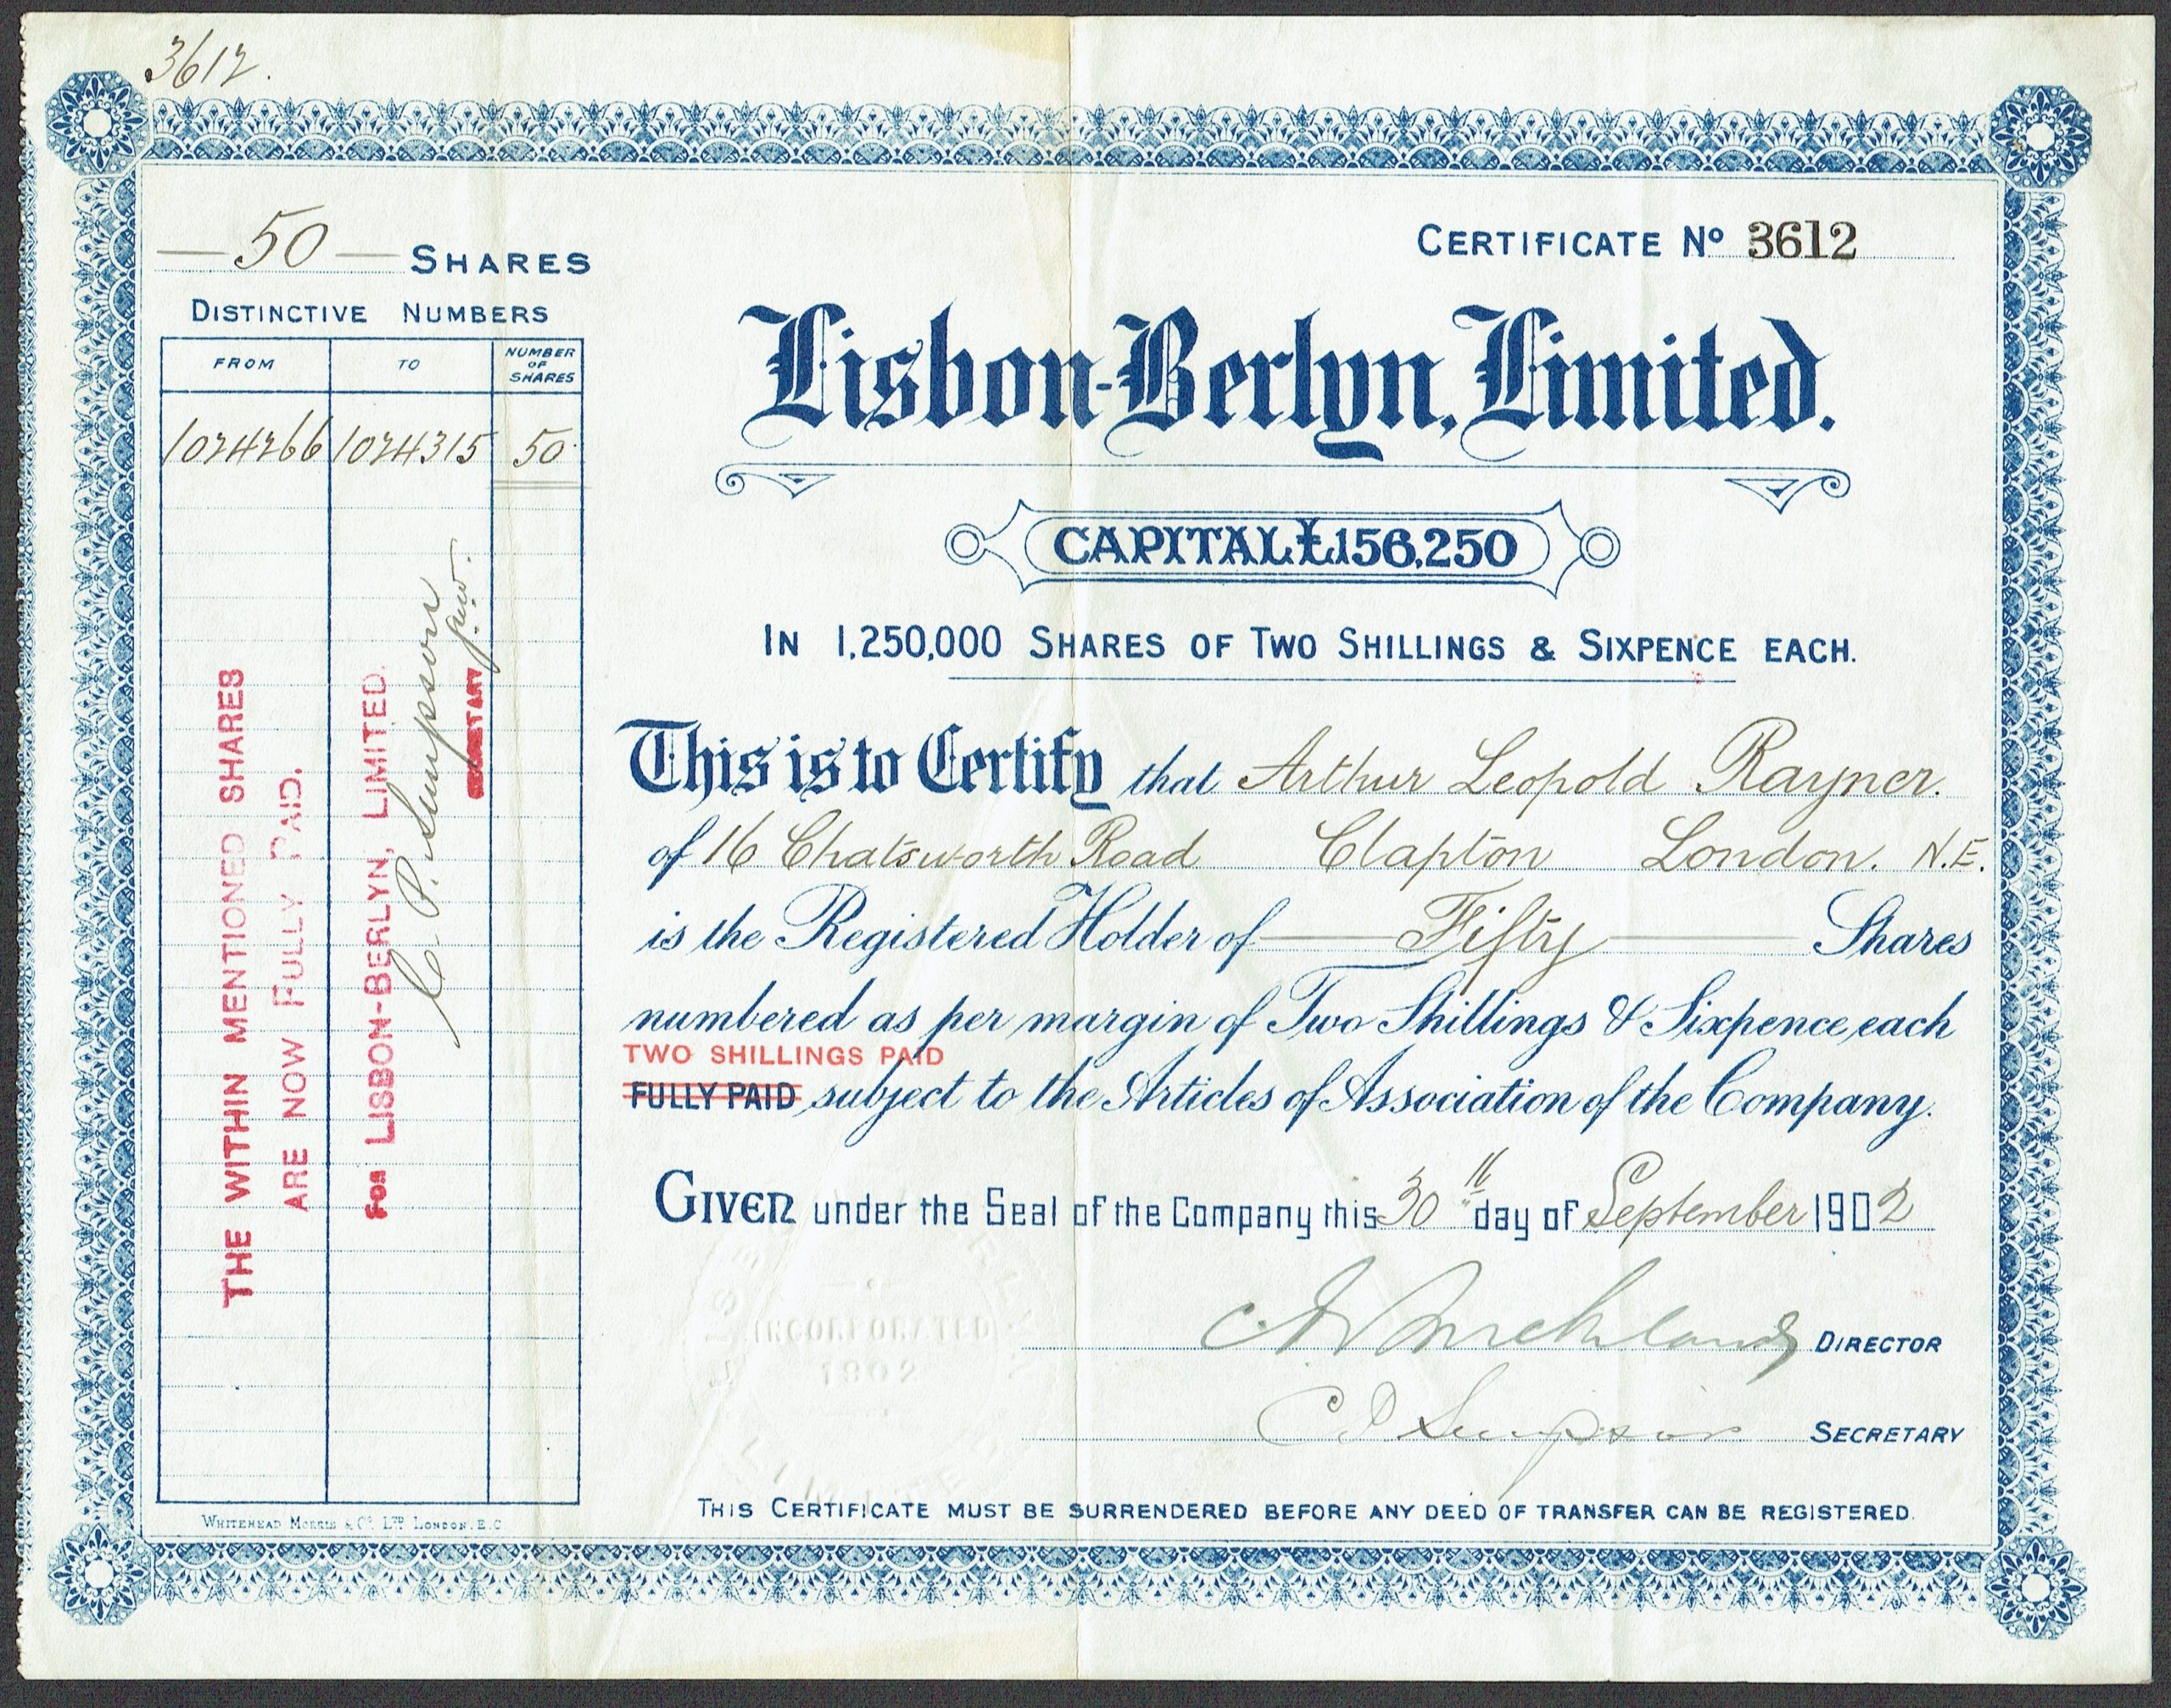 3612.
50 SHARES
CERTIFICATE No 3612
DISTINCTIVE NUMBERS
FROM TO NUMBER OF SHARES
1024266 1024315 50
Lisbon-Berlyn, Limited.
CAPITAL £156,250
IN 1,250,000 SHARES OF TWO SHILLINGS & SIXPENCE EACH.
This is to Certify that Arthur Leopold Rayner.
of 16 Chatsworth Road Clapton London. N.E.
is the Registered Holder of Fifty Shares
numbered as per margin of Two Shillings & Sixpence each
TWO SHILLINGS PAID
FULLY PAID subject to the Articles of Association of the Company.
GIVEN under the Seal of the Company this 30th day of September 1902
DIRECTOR
C P Simpson SECRETARY
THIS CERTIFICATE MUST BE SURRENDERED BEFORE ANY DEED OF TRANSFER CAN BE REGISTERED.
THE WITHIN MENTIONED SHARES
ARE NOW FULLY PAID.
FOR LISBON-BERLYN, LIMITED.
C. P. Simpson
SECRETARY
INCORPORATED
1902
WHITEHEAD MORRIS & Co. LTD LONDON. E.C.